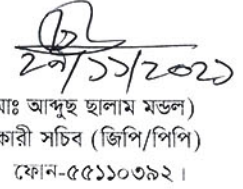 ২৯/১১/২০২১
মোঃ আব্দুছ ছালাম মন্ডল)
কারী সচিব (জিপি/পিপি)
ফোন-৫৫১১০৩৯২।